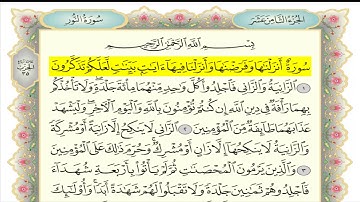 الجزء الثامن عشر
سورة النور
بِسْمِ اللَّهِ الرَّحْمَٰنِ الرَّحِيمِ
سُورَةٌ أَنزَلْنَاهَا وَفَرَضْنَاهَا وَأَنزَلْنَا فِيهَا ءَايَاتٍ بَيِّنَاتٍ لَّعَلَّكُمْ تَذَكَّرُونَ
١ الزَّانِيَةُ وَالزَّانِي فَاجْلِدُوا كُلَّ وَاحِدٍ مِّنْهُمَا مِائَةَ جَلْدَةٍ وَلَا تَأْخُذْكُم
بِهِمَا رَأْفَةٌ فِي دِينِ اللَّهِ إِن كُنتُمْ تُؤْمِنُونَ بِاللَّهِ وَالْيَوْمِ الْآخِرِ وَلْيَشْهَدْ
عَذَابَهُمَا طَائِفَةٌ مِّنَ الْمُؤْمِنِينَ ٢ الزَّانِي لَا يَنكِحُ إِلَّا زَانِيَةً أَوْ مُشْرِكَةً
وَالزَّانِيَةُ لَا يَنكِحُهَا إِلَّا زَانٍ أَوْ مُشْرِكٌ وَحُرِّمَ ذَٰلِكَ عَلَى الْمُؤْمِنِينَ
٣ وَالَّذِينَ يَرْمُونَ الْمُحْصَنَاتِ ثُمَّ لَمْ يَأْتُوا بِأَرْبَعَةِ شُهَدَاءَ
فَاجْلِدُوهُمْ ثَمَانِينَ جَلْدَةً وَلَا تَقْبَلُوا لَهُمْ شَهَادَةً أَبَدًا وَأُولَٰئِكَ
الحزب
٣٥